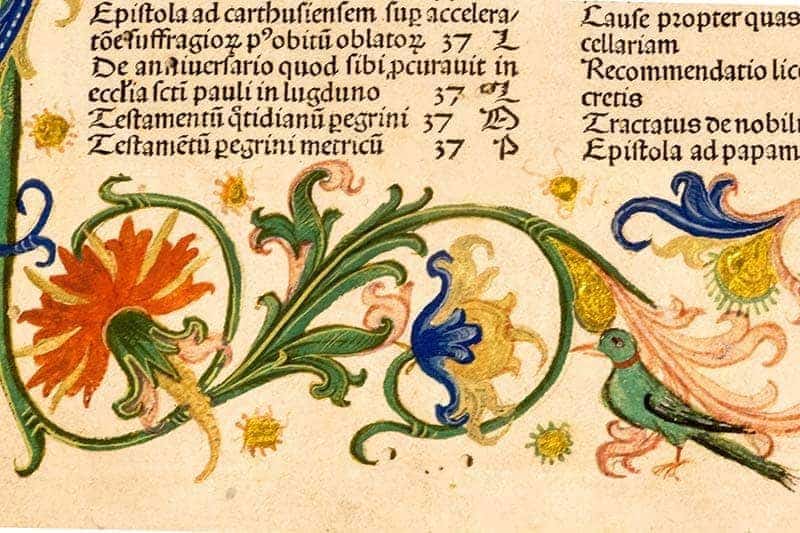 Epistola ad carthusiensem suꝑ accelera⸗
tōe suffragioꝝ pꝰ obitū oblatoꝝ 37 L
De anniuersario quod sibi ꝓcurauit in
ecclīa scti pauli in lugduno 37 L
Testamentū q̄tidianū ꝑegrini 37 M
Testamētū ꝑegrini metricū 37 P
Cause propter quas
cellariam
Recommendatio lice
cretis
Tractatus de nobili
Epistola ad papam